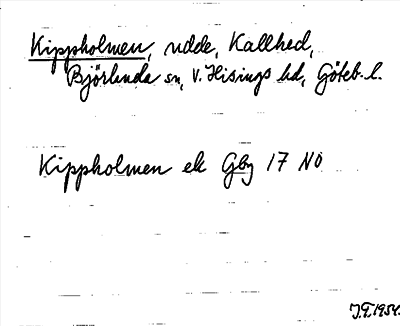 Kippholmen, udde, Kallhed,
Björlanda sn, V. Hisings hd, Göteb. l.
Kippholmen ek Gbg 17 NO
J.T. 1954.